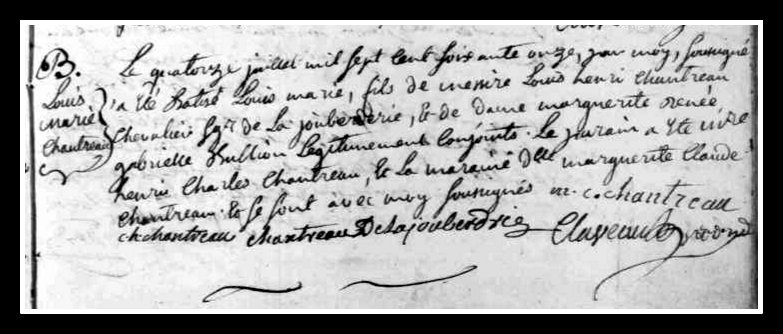 B.
Louis
marie
chantreau
Le quatorze juillet mil sept cent soixante onze, par moy, soussigné
a été batisé Louis marie, fils de messire Louis henri chantreau
chevalier sgr de La jouberderie, & de dame marguerite renée
gabrielle Hullion Legitimement conjoints. Le parain a été mre
henri Charles chantreau, & la maraine dlle marguerite Claude
chantreau & se sont avec moy soussignés m. c. chantreau
ch chantreau chantreau De Lajouberdrie